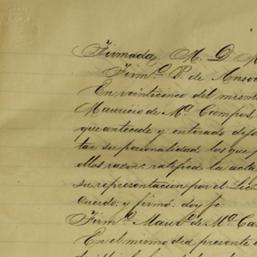 Firmado, M. D. M
Firm.º P. de Anso
En veinticinco del mism
Mauricio de M.ª Campos
que antecede y enterado de
tar su personalidad los que
ellos razon: ratifica la acta
su representacion por el Lic
cuerdo y firmó. doy fé.
Firm.º Maur.º de M.ª Ca
En el mismo dia presente